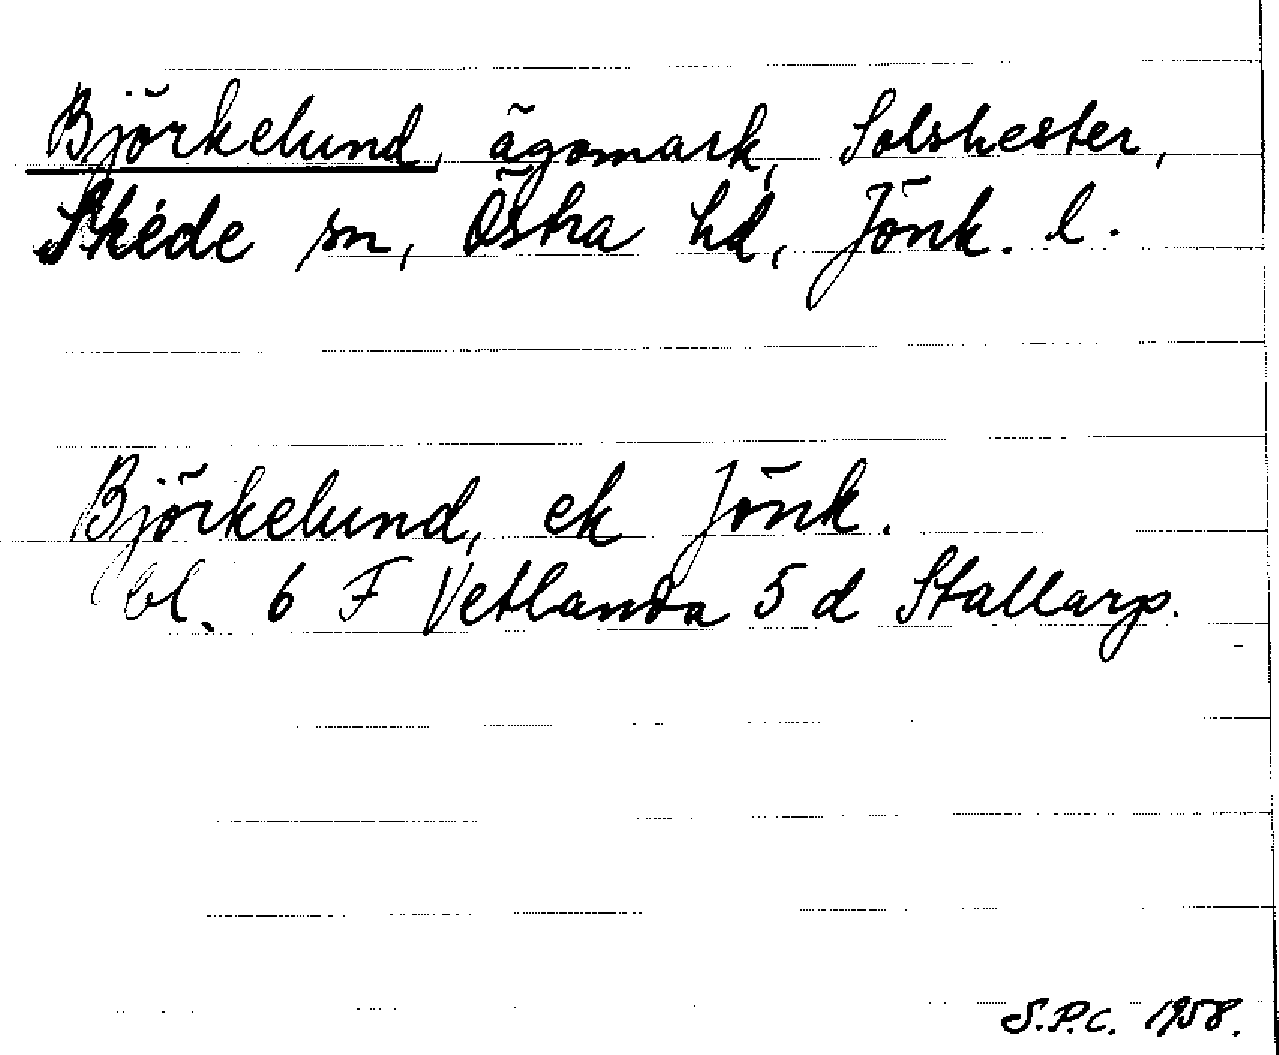 Björkelund, ägomark, Solshester,
Skède sn, Östra hd, Jönk. l.
Björkelund, ek Jönk.
bl. 6 F Vetlanda 5 d Stallarp.
S.P.C. 1958.